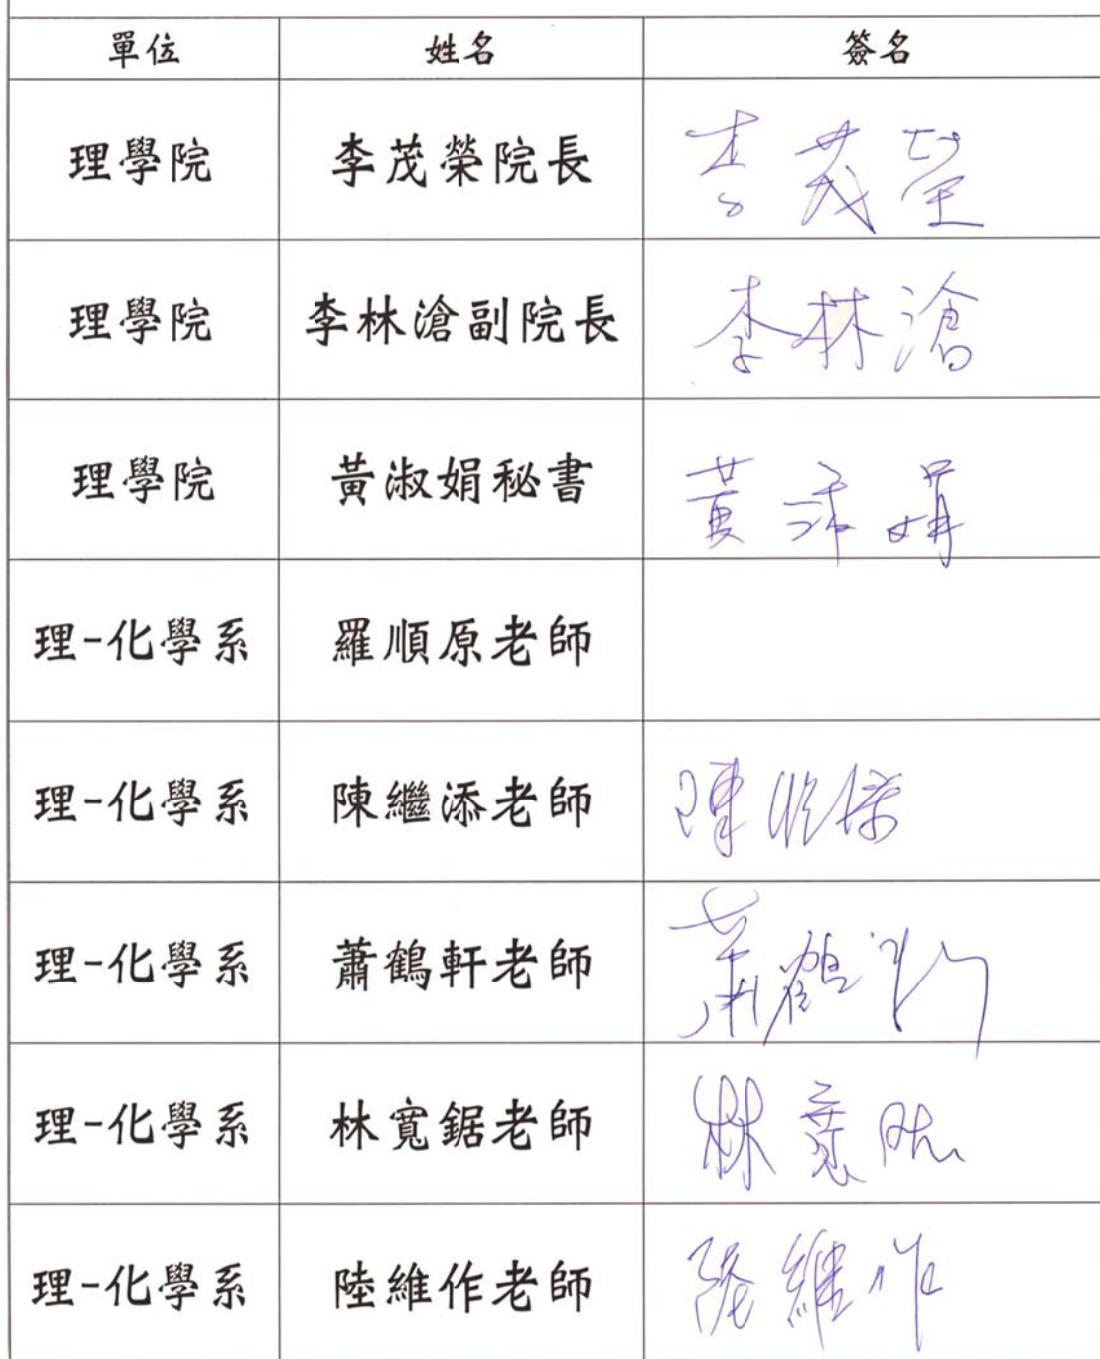 單位 姓名 簽名
理學院 李茂榮院長 李茂榮
理學院 李林滄副院長 李林滄
理學院 黃淑娟秘書 黃淑娟
理-化學系 羅順原老師
理-化學系 陳繼添老師 陳
理-化學系 蕭鶴軒老師 蕭鶴軒
理-化學系 林寬鋸老師 林寬
理-化學系 陸維作老師 陸維作